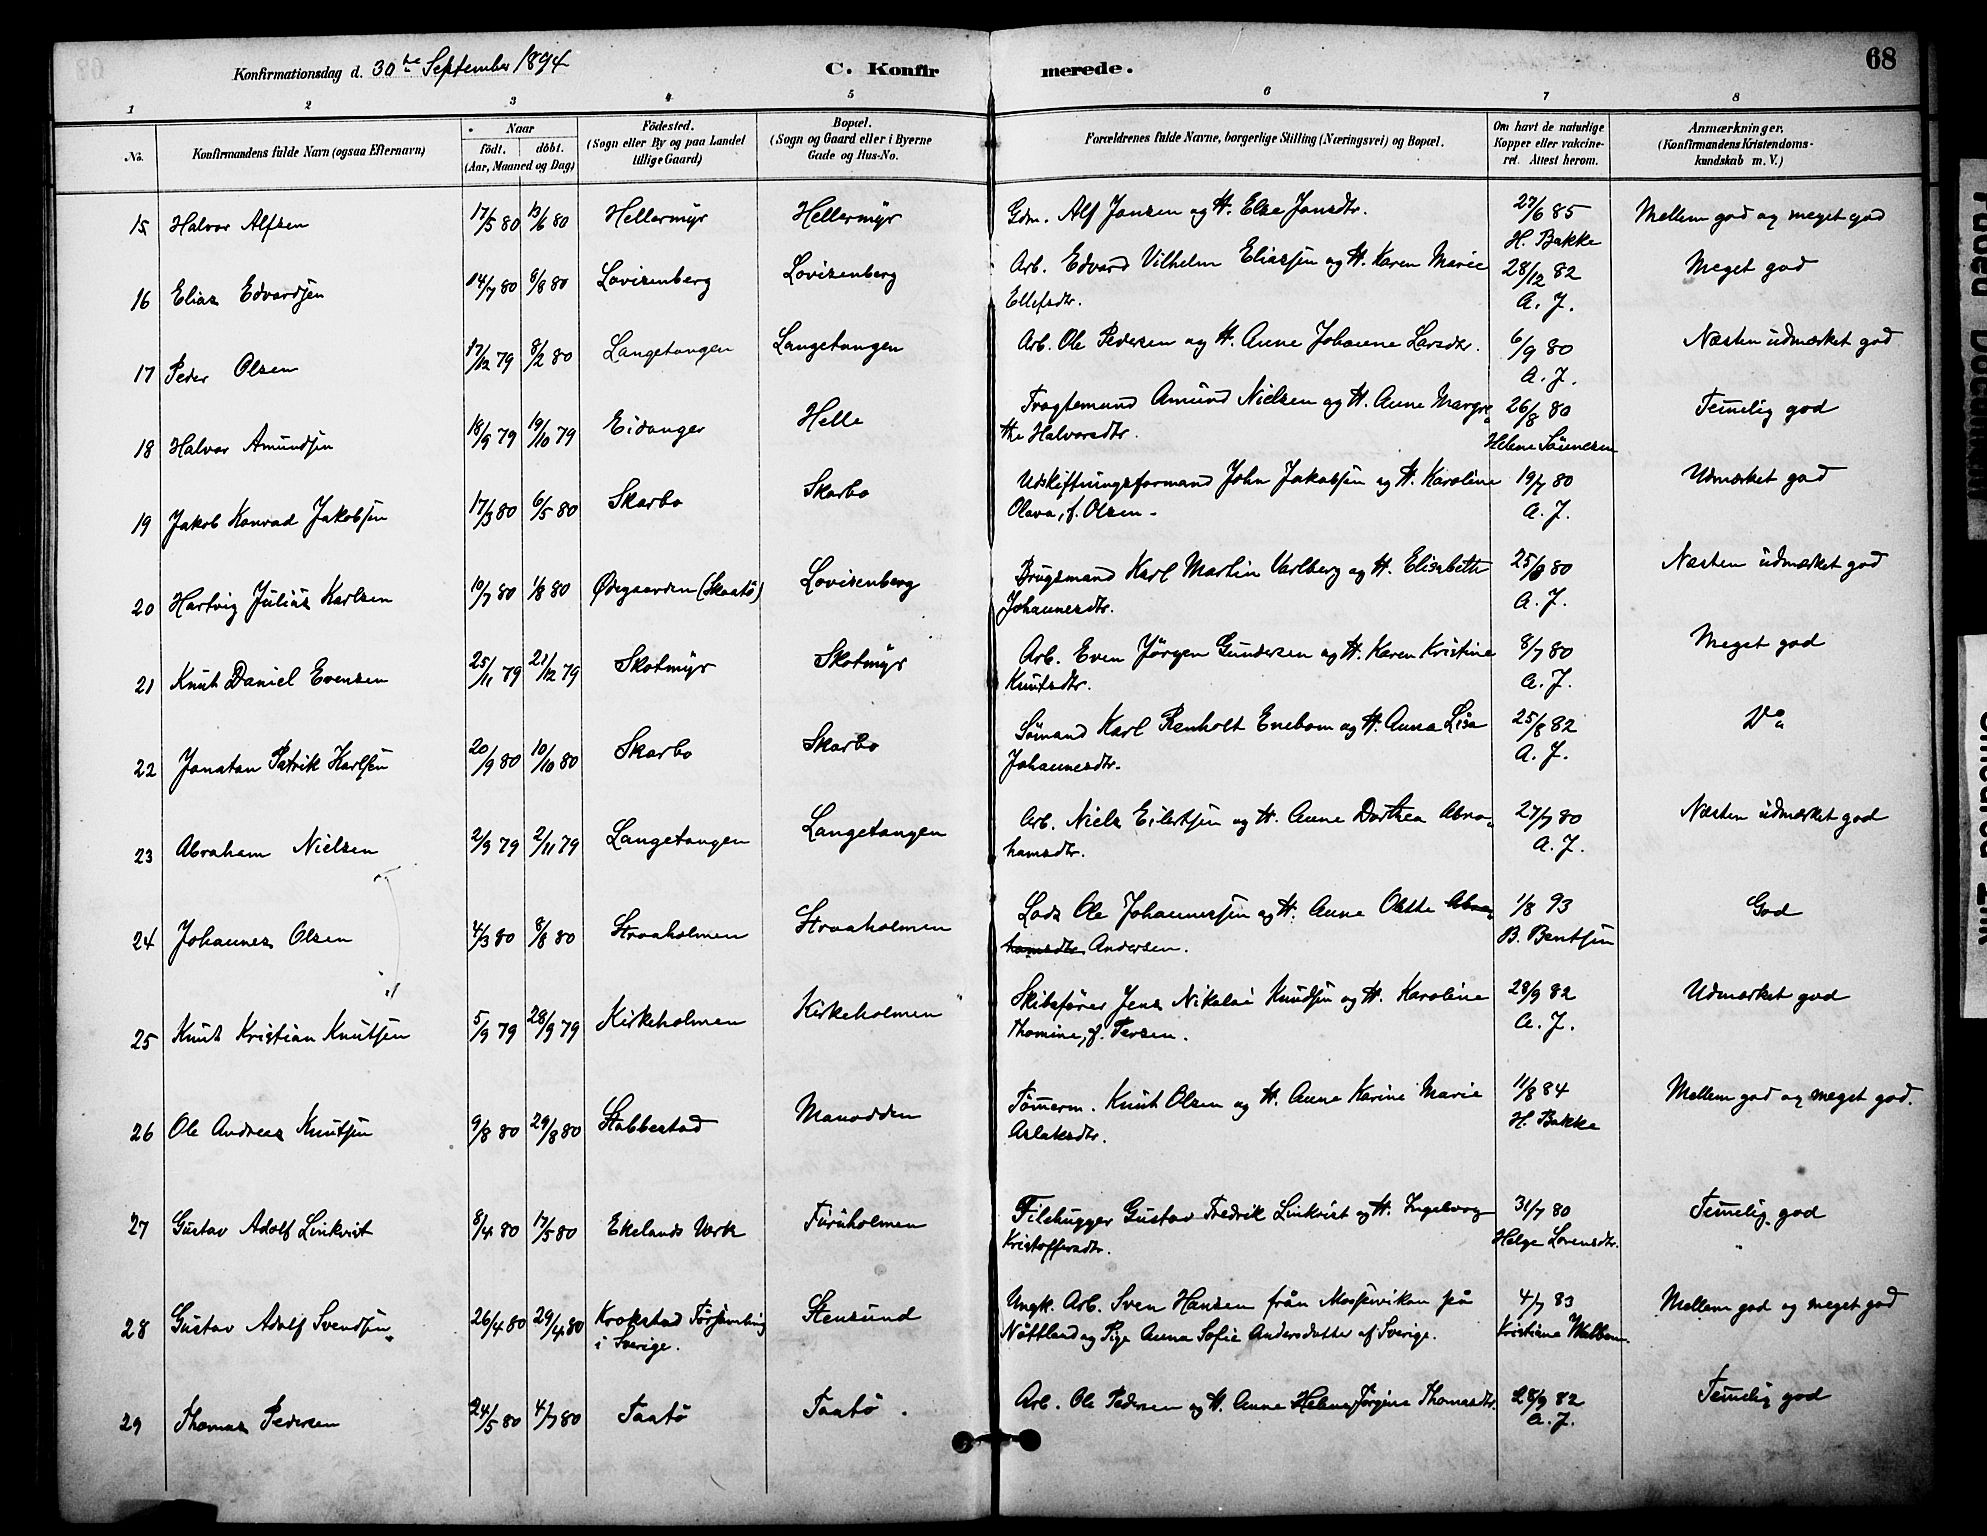 Konfirmationsdag d. 30te September 1894
C. Konfirmerede.
68
1 2 3 4 5 6 7 8
No. Konfirmandens fulde Navn (ogsaa Efternavn) Naar født. døbt. (Aar, Maaned og Dag) Fødested. (Sogn eller By og paa Landet tillige Gaard) Bopæl. (Sogn og Gaard eller i Byerne Gade og Hus-No. Forældrenes fulde Navne, borgerlige Stilling (Næringsvei) og Bopæl. Om havt de naturlige Kopper eller vakcineret. Attest herom. Anmærkninger. (Konfirmandens Kristendomskundskab m. V.)
15 Halvor Alfsen 17/5 80 13/6 80 Hellermyr Hellermyr Gdm. Alf Jansen og H. Else Jansdtr. 27/6 85 Mellem god og meget god
H. Bakke
16 Elias Edvardsen 14/7 80 8/8 80 Lovisenberg Lovisenberg Arb. Edvard Vilhelm Eliassen og H. Karen Marie 28/12 82 Meget god
Ellefsdtr. A. J.
17 Peder Olsen 17/12 79 8/2 80 Langetangen Langetangen Arb. Ole Pedersen og H. Anne Johanne Larsdtr. 6/9 80 Næsten udmærket god
A. J.
18 Halvor Amundsen 18/9 79 19/10 79 Eidanger Helle Fragtemand Amund Nielsen og H. Anne Margre 26/8 80 Temelig god
the Halvorsdtr. Helene Sännesen
19 Jakob Konrad Jakobsen 17/3 80 6/5 80 Skarbo Skarbo Udskiftningsformand John Jakobsen og H. Karoline 19/7 80 Udmærket god
Olava, f. Olsen. A. J.
20 Hartvig Julius Karlsen 19/7 80 1/8 80 Ødegaarden (Skaatö) Lovisenberg Brugsmand Karl Martin Varlberg og H. Elisabeth 25/9 80 Næsten udmærket god
Johannesdtr. A. J.
21 Knut Daniel Evensen 25/11 79 21/12 79 Skotmyr Skotmyr Arb. Even Jörgen Gundersen og H. Karen Kristine 8/7 80 Meget god
Knutsdtr. A. J.
22 Jonatan Patrik Karlsen 20/9 80 10/10 80 Skarbo Skarbo Sömand Karl Renholt Enebom og H. Anna Lisa 25/8 82 Do
Johannesdtr. A. J.
23 Abraham Nielsen 2/9 79 2/11 79 Langetangen Langetangen Arb. Niels Eilertsen og H. Anne Dorthea Abra 27/7 80 Næsten udmærket god
hamsdtr. A. J.
24 Johannes Olsen 4/3 80 8/8 80 Straaholmen Straaholmen Lods Ole Johannessen og H. Anne Oette Abra 1/8 93 God
hamsdtr Andersen. B. Bentsen
25 Knut Kristian Knutsen 5/9 79 28/9 79 Kirkeholmen Kirkeholmen Skibsfører Jens Nikolai Knudsen og H. Karoline 28/9 82 Udmærket god
Thomine, f. Persen. A. J.
26 Ole Andreas Knutsen 9/8 80 29/8 80 Stabbestad Manodden Tömerm. Knut Olsen og H. Anne Karine Marie 11/8 84 Mellem god og meget god.
Aslaksdtr. H. Bakke
27 Gustav Adolf Linkvist 8/4 80 17/5 80 Ekelands Verk Furuholmen Filehugger Gustav Fredrik Linkvist og H. Ingeborg 31/7 80 Temelig god
Kristoffersdtr. Helge Lorensdtr.
28 Gustav Adolf Svendsen 26/4 80 29/4 80 Krokstad Församling Stensund Ungk. Arb. Sven Hansen från Mossevikan på 4/7 83 Mellem god og meget god
i Sverige. Nöttland og Pige Anna Sofie Andersdatter af Sverige. Kristiane Walbom
29 Thomas Pedersen 24/5 80 4/7 80 Taatö Taatö. Arb. Ole Pedersen og H. Anne Helene Jörgine Thomasdtr. 28/9 82 Temelig god
A. J.